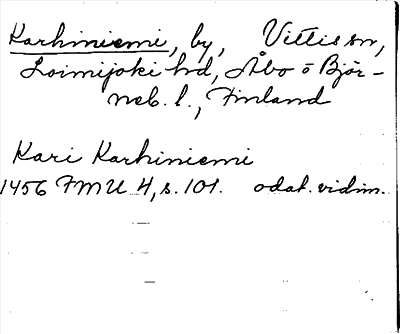 Karhiniemi, by, Vittis sn,
Loimijoki hd, Åbo o Björ-
neb. l., Finland
Kari Karhiniemi
1456 FMU 4, s. 101. odat. vidim.